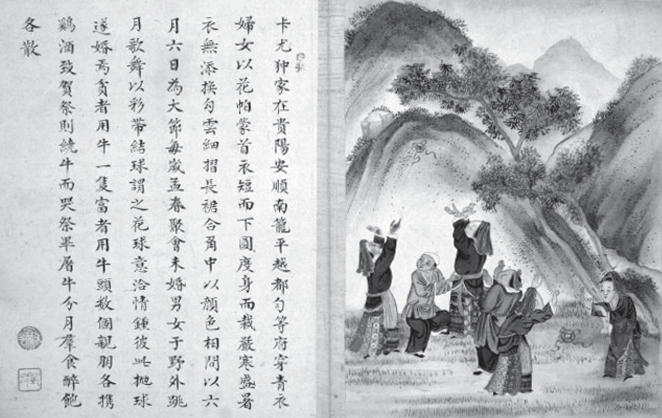 卡尤狆家在貴陽安順南籠平越都勻等府穿青衣
婦女以花帕蒙首衣短而下圓度身而裁嚴寒盛暑
衣無添換勾雲細摺長裙合中以顏色相間以六
月六日為大節每歲孟春聚會未婚男女于野外跳
月歌舞以彩帶結球謂之花球意洽情鍾彼此拋球
遂婚焉貧者用牛一隻富者用牛頭數個親朋各携
鷄酒致賀祭則繞牛而哭祭畢屠牛分月羣食醉飽
各散